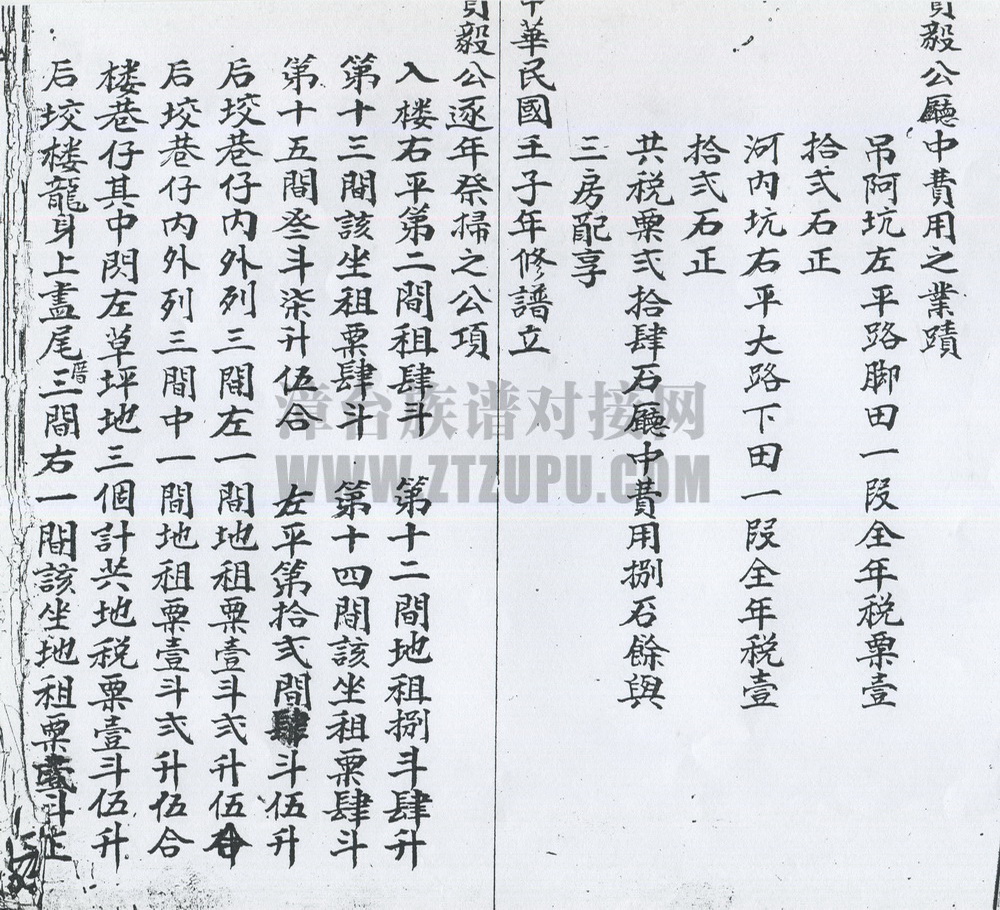 毅公廳中費用之業蹟
吊阿坑左平路脚田一段全年税粟壹
拾弍石正
河内坑右平大路下田一段全年税壹
拾弍石正
共税粟弍拾肆石廳中費用捌石餘與
三房配享
中華民國壬子年修譜立
毅公逐年祭掃之公項
入楼右平第二間租肆斗 第十二間地租捌斗肆升
第十三間該坐租粟肆斗 第十四間該坐租粟肆斗
第十五間叁斗柒升伍合 左平第拾弍間肆斗伍升
后垵巷仔内外列三間左一間地租粟壹斗弍升伍合
后垵巷仔内外列三間中一間地租粟壹斗弍升伍合
楼巷仔其中閃左草坪地三個計共地税粟壹斗伍升
后垵楼龍身上盡尾三間右一間該坐地租粟壹斗正
漳台族谱对接网
WWW.ZTZUPU.COM